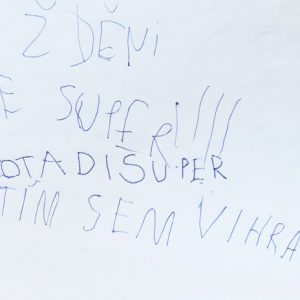 ŽDĚNÍ
E SUPER!!!!
OTADISUPER
TÍM SEM VIHRA